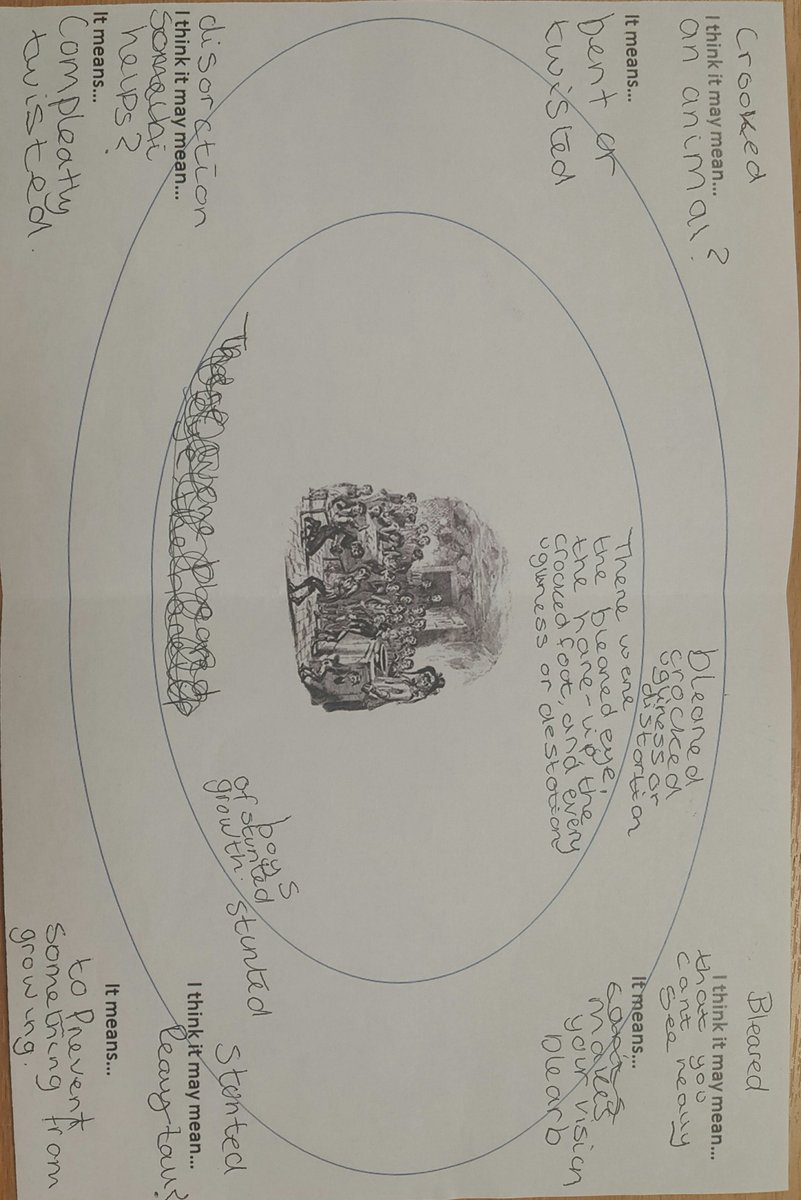 Crooked
I think it may mean...
an animal?
It means...
bent or
twisted
Bleared
I think it may mean...
that you
cant
see realy
It means...
makes
your vision
blearb
bleared
crocked
ugliness or
distortion
There were
the bleared eye,
the hare-lip the
crocked foot, and every
uglness or destotion
boys
of stunted
growth.
stunted
disoration
I think it may mean...
helps?
It means...
Compleatly
twisted.
Stonted
I think it may mean...
It means...
to Prevent
something from
growing.